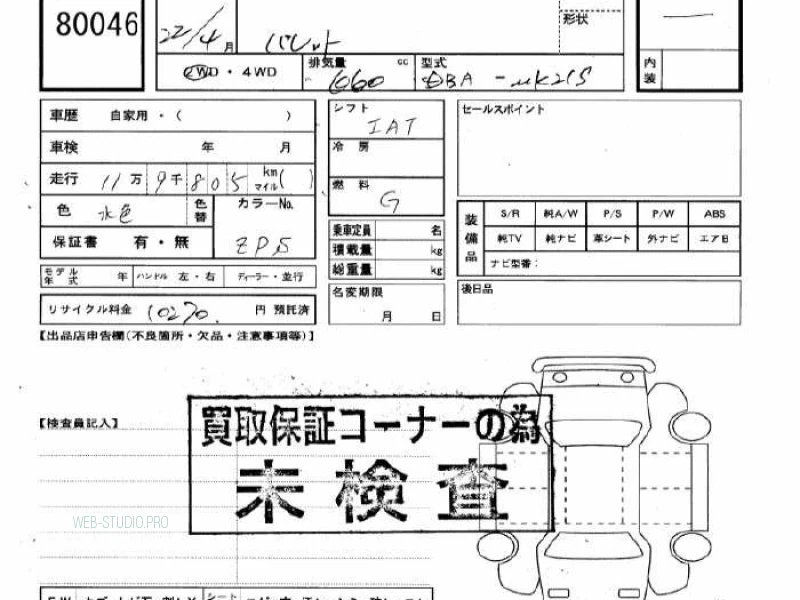 80046
22/4月
パレット
形状
2WD・4WD
排気量 cc
660
型式
DBA-MK21S
内装
車歴 自家用・( )
車検 年 月
走行 11万9千805 km マイル( )
色 水色 色替
カラーNo.
ZPS
保証書 有・無
モデル年式 年 ハンドル 左・右 ディーラー・並行
リサイクル料金 10270 円 預託済
シフト
IAT
冷房
燃料
G
乗車定員 名
積載量 kg
総重量 kg
名変期限
月 日
セールスポイント
装備品
S/R 純A/W P/S P/W ABS
純TV 純ナビ 革シート 外ナビ エアB
ナビ型番:
後日品
【出品店申告欄(不良箇所・欠品・注意事項等)】
【検査員記入】
買取保証コーナーの為
未検査
WEB-STUDIO.PRO